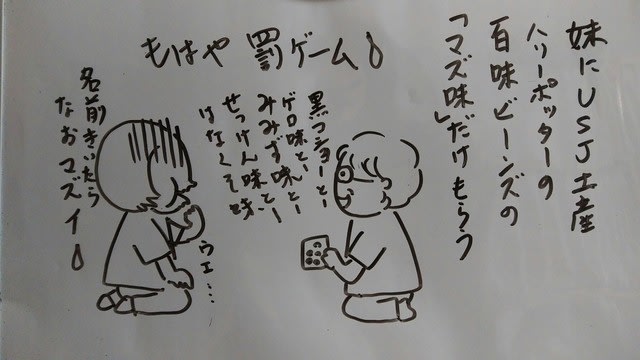 妹にUSJ土産
ハリーポッターの
百味ビーンズの
「マズ味」だけもらう
もはや 罰ゲーム
黒コショーとー
ゲロ味とー
みみず味とー
せっけん味、
はなくそ味
ウェ…
名前きいたら
なおマズイ